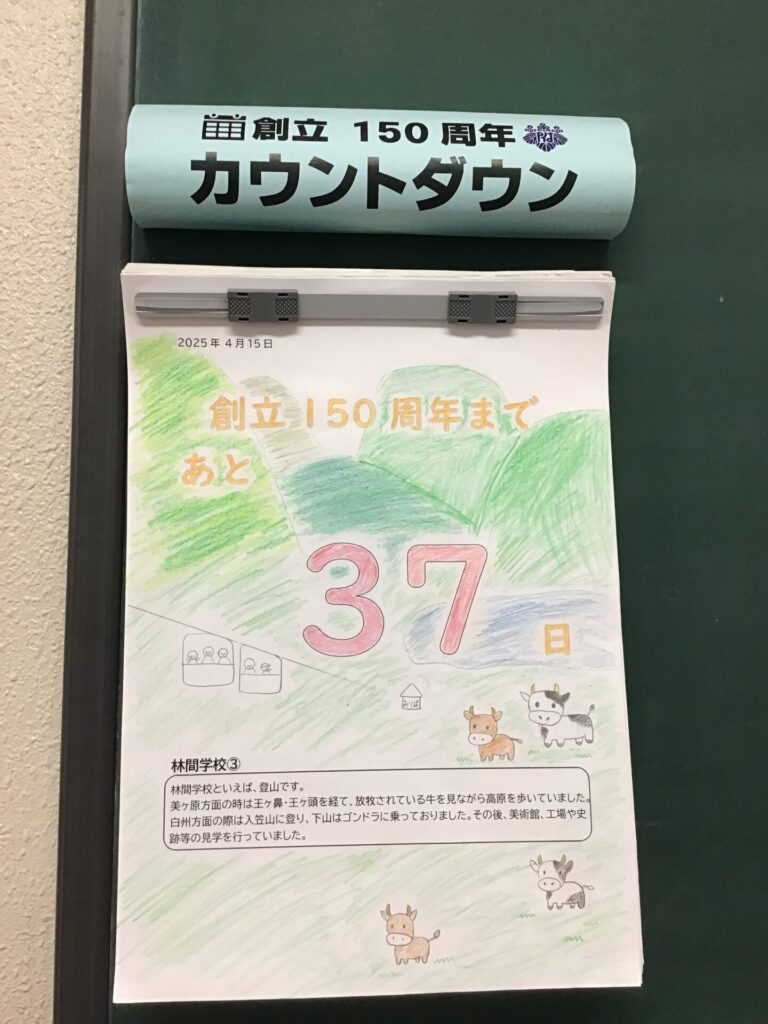 創立 150 周年
カウントダウン
2025年 4月15日
創立 150 周年まで
あと
37
日
林間学校③
林間学校といえば、登山です。
美ヶ原方面の時は王ヶ鼻・王ヶ頭を経て、放牧されている牛を見ながら高原を歩いていました。
白州方面の際は入笠山に登り、下山はゴンドラに乗っておりました。その後、美術館、工場や史
跡等の見学を行っていました。